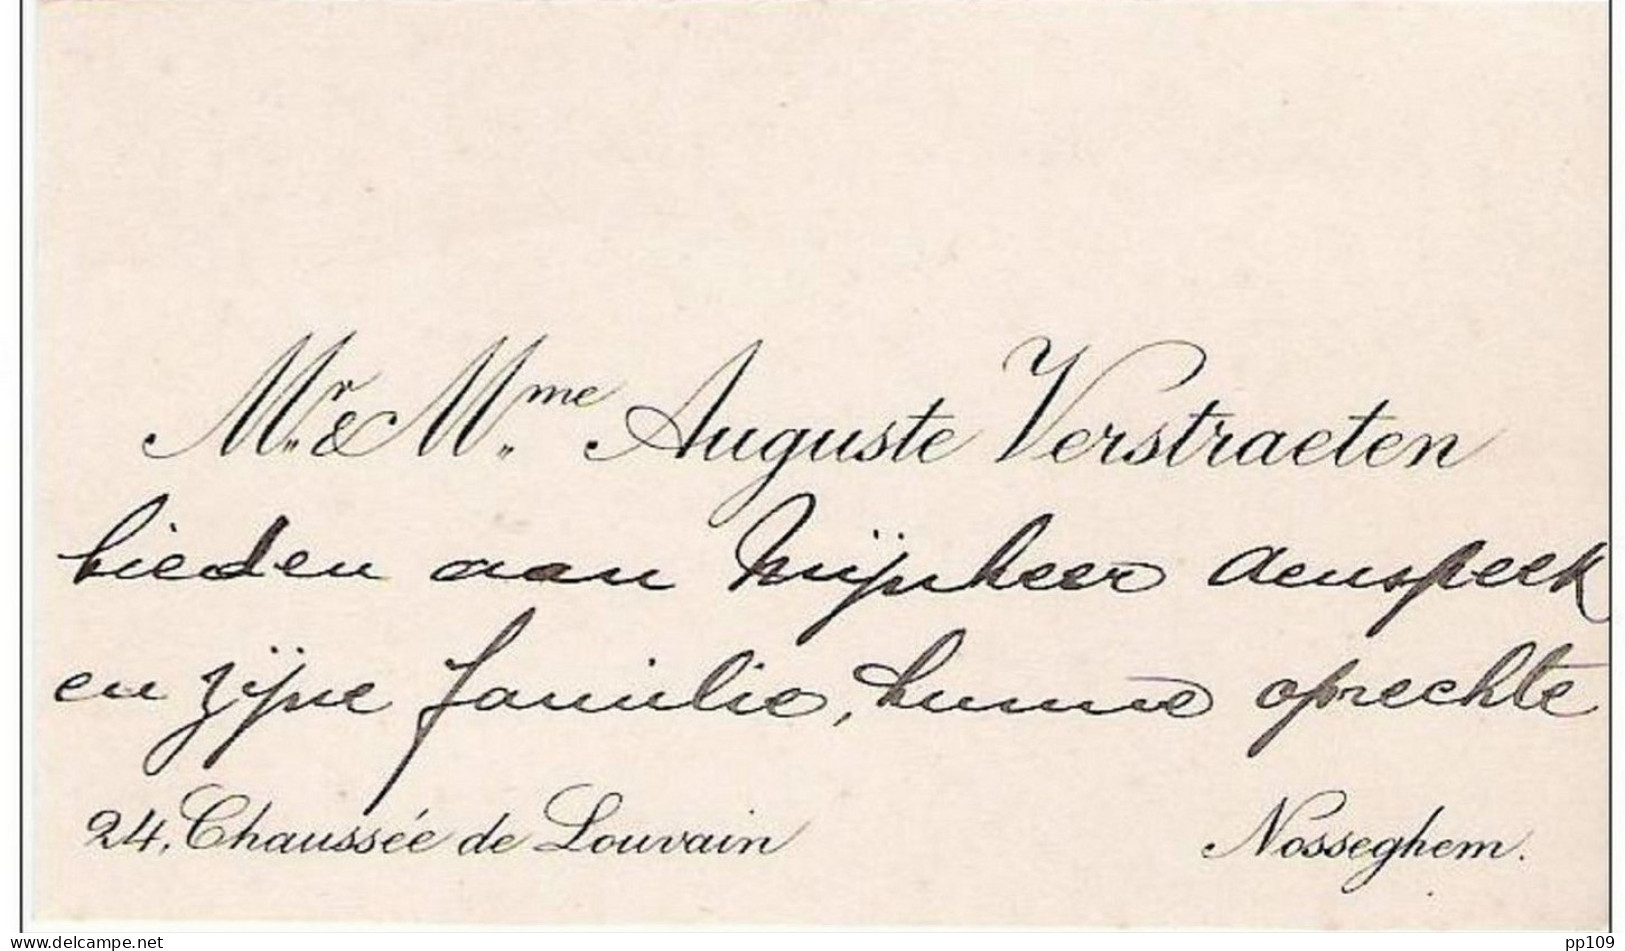 Mr. & Mme. Auguste Verstraeten
bieden aan Mijnheer Aenspeck
en zijne familie, hunne oprechte
24, Chaussée de Louvain Nosseghem.
www.delcampe.net pp109